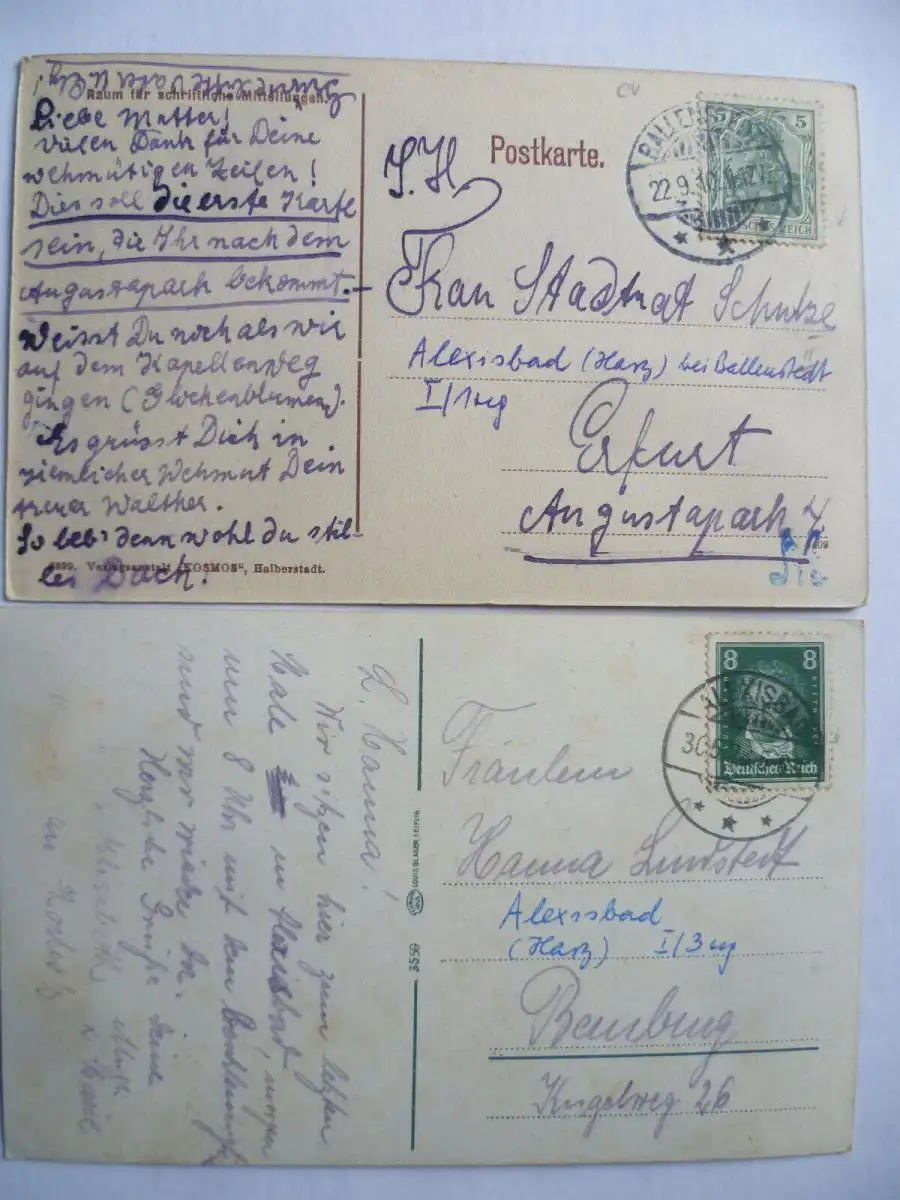 Raum für schriftliche Mitteilungen.
Liebe Mutter!
Vielen Dank für Deine
wehmütigen Zeilen!
Dies soll die erste Karte
sein, die Ihr nach dem
Augustapark bekommt.
Weisst Du noch als wir
auf dem Kapellenweg
gingen (Glockenblumen).
Es grüsst Dich in
ziemlicher Wehmut Dein
treuer Walther.
So leb' denn wohl du stil-
les Dach.
8899. Verlagsanstalt "KOSMOS", Halberstadt.
Postkarte.
S.H.
BALLENSTEDT
22.9.10
5 5
DEUTSCHES REICH
Frau Stadtrat Schulze
Alexisbad (Harz) bei Ballenstedt
I/1
Erfurt
Augustapark
L. Hanna!
Wir sitzen hier zum letzten
Male in Alexisbad
um 8 Uhr
sind wir wieder
Herzliche Grüße
LOUIS GLASER, LEIPZIG
3550
ALEXISBAD
8 8
Deutsches Reich
Fräulein
Hanna Lundstedt
Alexisbad
(Harz) I/3
Bernburg
Kugelweg 26